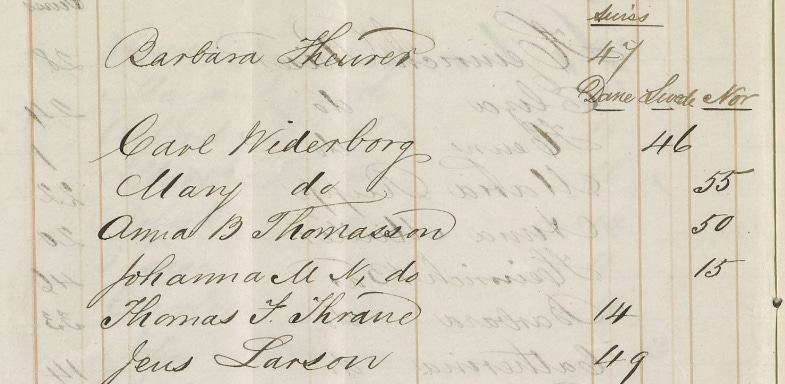 Swiss
Barbara Theurer 47
Dane Swede Nor
Carl Widerborg 46
Mary do 55
Anna B Thomasson 50
Johanna M N, do 15
Thomas F. Thrane 14
Jens Larson 49